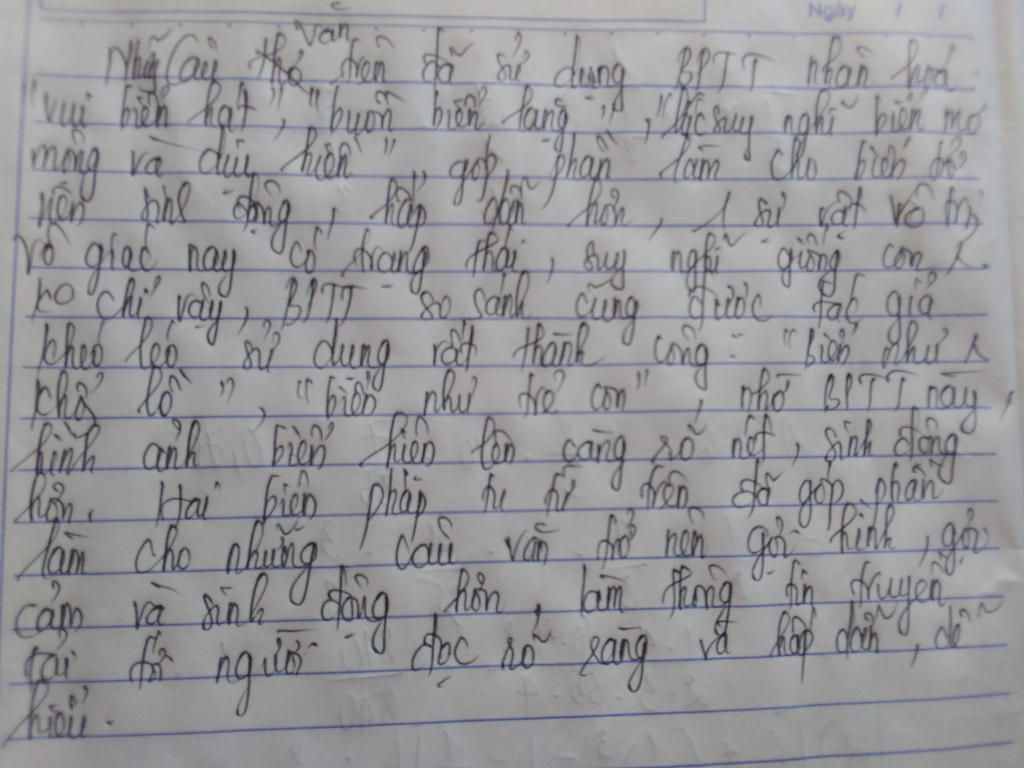 Ngày / /
văn
Những câu thơ trên đã sử dụng BPTT nhân hoá
"vui biển hát", "buồn biển lặng", "lúc suy nghĩ biển mơ
mộng và dịu hiền", góp phần làm cho biển trở
nên sinh động, hấp dẫn hơn, 1 sự vật vô tri
vô giác nay có trạng thái, suy nghĩ giống con
ko chỉ vậy, BPTT so sánh cũng được tác giả
khéo léo sử dụng rất thành công: "biển như
khổng lồ", "biển như trẻ con", nhờ BPTT này,
hình ảnh biển hiện lên càng rõ nét, sinh động
hơn. Hai biện pháp tu từ trên đã góp phần
làm cho những câu văn trở nên gợi hình, gợi
cảm và sinh động hơn, làm thông tin truyền
tải tới người đọc rõ ràng và hấp dẫn, dễ
hiểu.